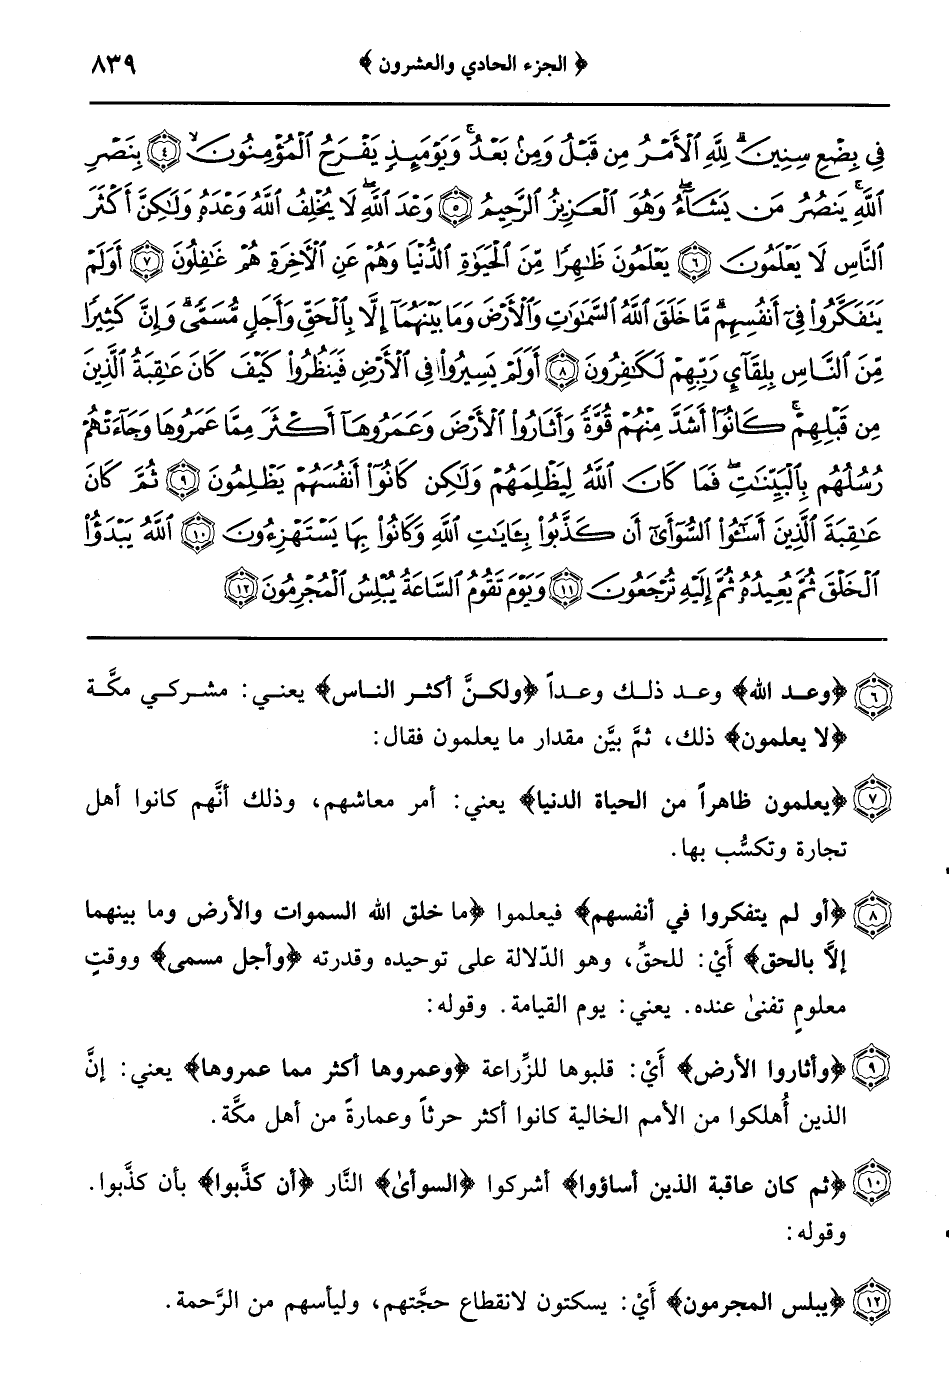 ﴿ الجزء الحادي والعشرون ﴾ ٨٣٩
فِي بِضْعِ سِنِينَ ۗ لِلَّهِ ٱلْأَمْرُ مِن قَبْلُ وَمِنۢ بَعْدُ ۚ وَيَوْمَئِذٍ يَفْرَحُ ٱلْمُؤْمِنُونَ ۙ ٤ بِنَصْرِ
ٱللَّهِ ۚ يَنصُرُ مَن يَشَآءُ ۖ وَهُوَ ٱلْعَزِيزُ ٱلرَّحِيمُ ٥ وَعْدَ ٱللَّهِ ۖ لَا يُخْلِفُ ٱللَّهُ وَعْدَهُۥ وَلَٰكِنَّ أَكْثَرَ
ٱلنَّاسِ لَا يَعْلَمُونَ ٦ يَعْلَمُونَ ظَٰهِرًا مِّنَ ٱلْحَيَوٰةِ ٱلدُّنْيَا وَهُمْ عَنِ ٱلْأٓخِرَةِ هُمْ غَٰفِلُونَ ٧ أَوَلَمْ
يَتَفَكَّرُوا۟ فِىٓ أَنفُسِهِم ۗ مَّا خَلَقَ ٱللَّهُ ٱلسَّمَٰوَٰتِ وَٱلْأَرْضَ وَمَا بَيْنَهُمَآ إِلَّا بِٱلْحَقِّ وَأَجَلٍ مُّسَمًّى ۗ وَإِنَّ كَثِيرًا
مِّنَ ٱلنَّاسِ بِلِقَآئِ رَبِّهِمْ لَكَٰفِرُونَ ٨ أَوَلَمْ يَسِيرُوا۟ فِى ٱلْأَرْضِ فَيَنظُرُوا۟ كَيْفَ كَانَ عَٰقِبَةُ ٱلَّذِينَ
مِن قَبْلِهِمْ ۚ كَانُوٓا۟ أَشَدَّ مِنْهُمْ قُوَّةً وَأَثَارُوا۟ ٱلْأَرْضَ وَعَمَرُوهَآ أَكْثَرَ مِمَّا عَمَرُوهَا وَجَآءَتْهُمْ
رُسُلُهُم بِٱلْبَيِّنَٰتِ ۖ فَمَا كَانَ ٱللَّهُ لِيَظْلِمَهُمْ وَلَٰكِن كَانُوٓا۟ أَنفُسَهُمْ يَظْلِمُونَ ٩ ثُمَّ كَانَ
عَٰقِبَةَ ٱلَّذِينَ أَسَٰٓـُٔوا۟ ٱلسُّوٓأَىٰٓ أَن كَذَّبُوا۟ بِـَٔايَٰتِ ٱللَّهِ وَكَانُوا۟ بِهَا يَسْتَهْزِءُونَ ١٠ ٱللَّهُ يَبْدَؤُا۟
ٱلْخَلْقَ ثُمَّ يُعِيدُهُۥ ثُمَّ إِلَيْهِ تُرْجَعُونَ ١١ وَيَوْمَ تَقُومُ ٱلسَّاعَةُ يُبْلِسُ ٱلْمُجْرِمُونَ ١٢
٦ ﴿وعد الله﴾ وعد ذلك وعداً ﴿ولكنَّ أكثر الناس﴾ يعني: مشركي مكَّة
﴿لا يعلمون﴾ ذلك، ثمَّ بيَّن مقدار ما يعلمون فقال:
٧ ﴿يعلمون ظاهراً من الحياة الدنيا﴾ يعني: أمر معاشهم، وذلك أنَّهم كانوا أهل
تجارة وتكسُّب بها.
٨ ﴿أو لم يتفكروا في أنفسهم﴾ فيعلموا ﴿ما خلق الله السموات والأرض وما بينهما
إلاَّ بالحق﴾ أَيْ: للحقِّ، وهو الدّلالة على توحيده وقدرته ﴿وأجل مسمى﴾ ووقتٍ
معلومٍ تفنىٰ عنده. يعني: يوم القيامة. وقوله:
٩ ﴿وأثاروا الأرض﴾ أَيْ: قلبوها للزِّراعة ﴿وعمروها أكثر مما عمروها﴾ يعني: إنَّ
الذين أُهلكوا من الأمم الخالية كانوا أكثر حرثاً وعمارةً من أهل مكَّة.
١٠ ﴿ثم كان عاقبة الذين أساؤوا﴾ أشركوا ﴿السوأىٰ﴾ النَّار ﴿أن كذَّبوا﴾ بأن كذَّبوا.
وقوله:
١٢ ﴿يبلس المجرمون﴾ أَيْ: يسكتون لانقطاع حجَّتهم، وليأسهم من الرَّحمة.